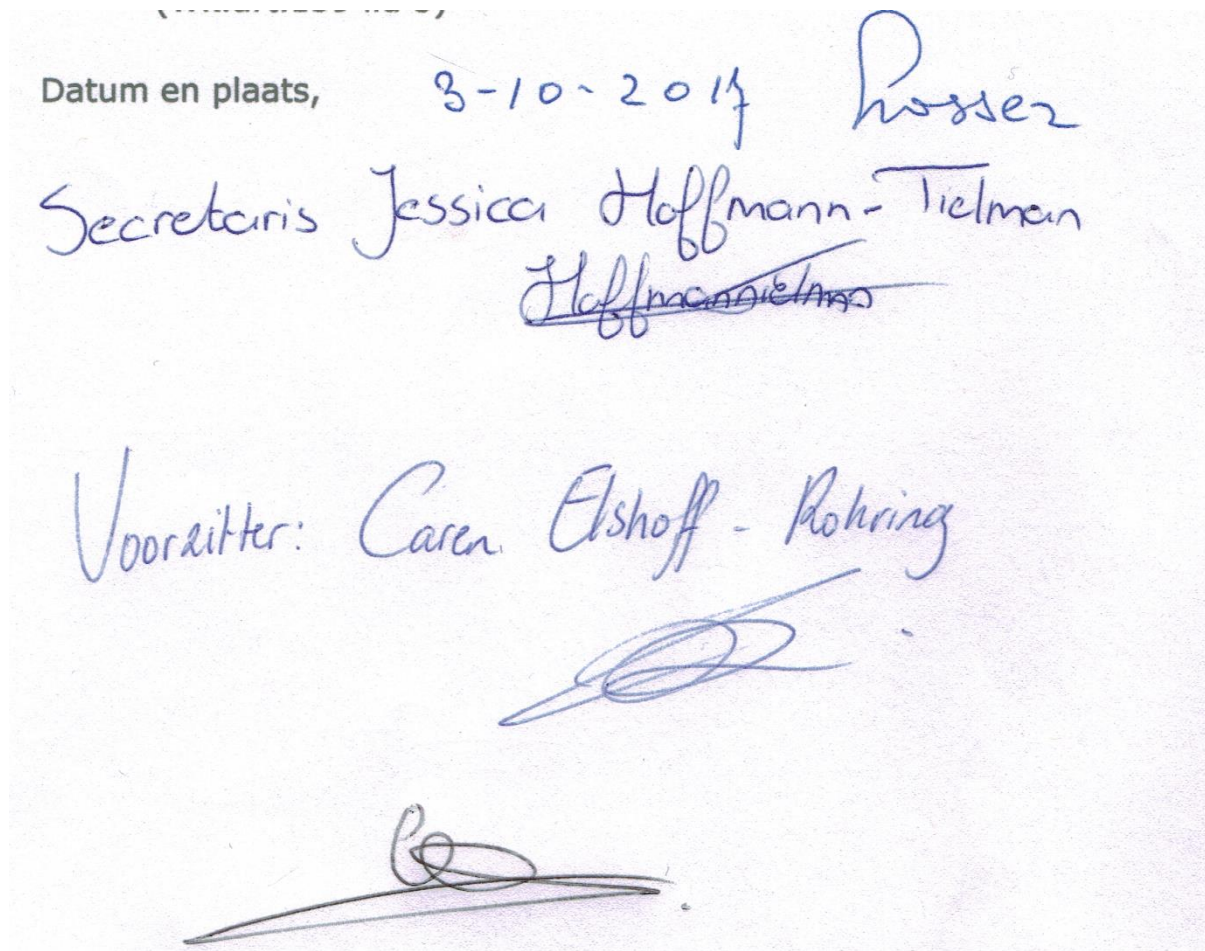 Datum en plaats, 3-10-2017 Losser
Secretaris Jessica Hoffmann-Tielman
Voorzitter: Caren Elshoff - Rohring